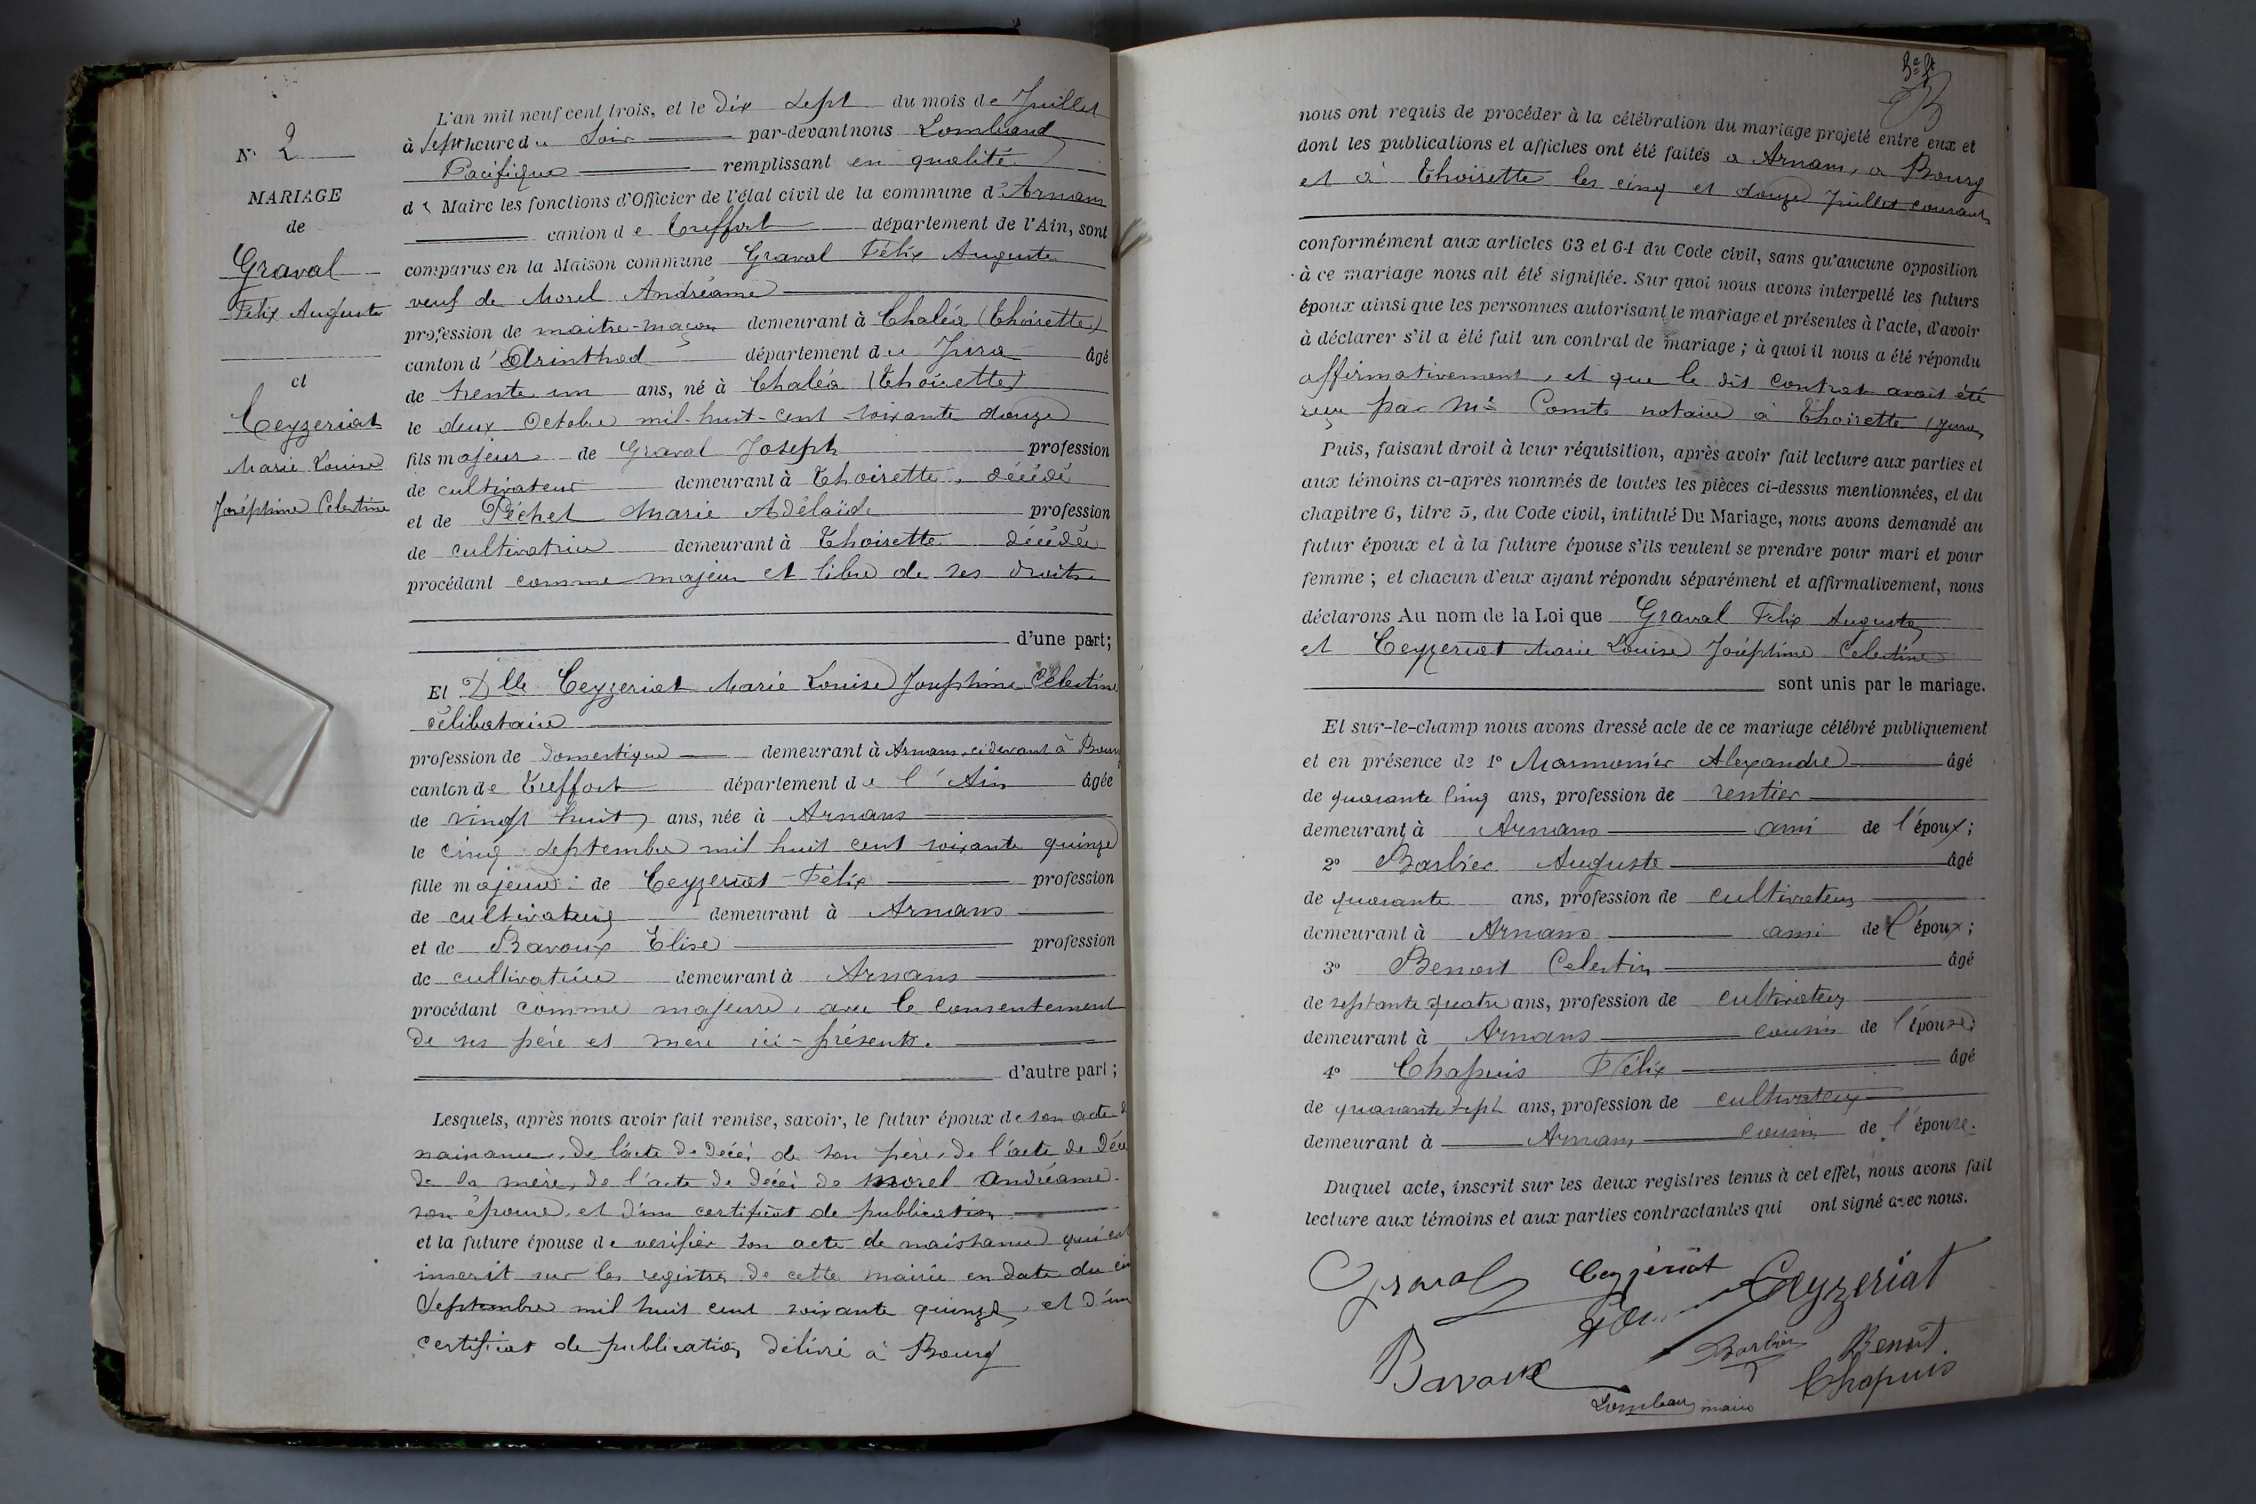 N° 2
MARIAGE
de
Graval
Félix Auguste
et
Ceyzeriat
Marie Louise
Joséphine Celestine
L'an mil neuf cent trois, et le dix sept du mois de Juillet
à sept heure du Soir par-devant nous
Pacifique remplissant en qualité
de Maire les fonctions d'Officier de l'état civil de la commune d'Arnans
canton de Treffort département de l'Ain, sont
comparus en la Maison commune Graval Félix Auguste
veuf de Morel Andréame
profession de maitre-maçon demeurant à Chaléa (Thoirette)
canton d'Arinthod département du Jura âgé
de trente un ans, né à Chaléa (Thoirette)
le deux Octobre mil-huit-cent soixante douze
fils majeur de Graval Joseph profession
de cultivateur demeurant à Thoirette, décédé
et de Péchet Marie Adélaïde profession
de cultivatrice demeurant à Thoirette décédée
procédant comme majeur et libre de ses droits
d'une part;
Et Dlle Ceyzeriat Marie Louise Joséphine Célestine
célibataire
profession de domestique demeurant à Arnans, ci devant à Bourg
canton de Treffort département de l'Ain âgée
de vingt huit ans, née à Arnans
le cinq septembre mil huit cent soixante quinze
fille majeure de Ceyzeriat Félix profession
de cultivateur demeurant à Arnans
et de Bavoux Elise profession
de cultivatrice demeurant à Arnans
procédant comme majeure, avec le consentement
de ses père et mère ici-présents.
d'autre part;
Lesquels, après nous avoir fait remise, savoir, le futur époux de son acte de
naissance, de l'acte de décès de son père, de l'acte de déc
de la mère, de l'acte de décès de Morel Andréame
son épouse, et d'un certificat de publication
et la future épouse de verifier son acte de naissance qui est
inscrit sur les registres de cette mairie en date du cin
Septembre mil huit cent soixante quinze, et d'un
certificat de publication délivré à Bourg
nous ont requis de procéder à la célébration du mariage projeté entre eux et
dont les publications et affiches ont été faites a Arnans, a Bourg
et à Thoirette les cinq et douze Juillet courant
conformément aux articles 63 et 64 du Code civil, sans qu'aucune opposition
à ce mariage nous ait été signifiée. Sur quoi nous avons interpellé les futurs
époux ainsi que les personnes autorisant le mariage et présentes à l'acte, d'avoir
à déclarer s'il a été fait un contrat de mariage; à quoi il nous a été répondu
affirmativement, et que le dit contrat avait été
reçu par Me Comte notaire à Thoirette (Jura)
Puis, faisant droit à leur réquisition, après avoir fait lecture aux parties et
aux témoins ci-après nommés de toutes les pièces ci-dessus mentionnées, et du
chapitre 6, titre 5, du Code civil, intitulé Du Mariage, nous avons demandé au
futur époux et à la future épouse s'ils veulent se prendre pour mari et pour
femme; et chacun d'eux ayant répondu séparément et affirmativement, nous
déclarons Au nom de la Loi que Graval Félix Auguste
et Ceyzeriat Marie Louise Joséphine Celestine
sont unis par le mariage.
Et sur-le-champ nous avons dressé acte de ce mariage célébré publiquement
et en présence de 1° Marmonier Alexandre âgé
de quarante cinq ans, profession de rentier
demeurant à Arnans ami de l'époux;
2° Barbier Auguste âgé
de quarante ans, profession de cultivateur
demeurant à Arnans ami de l'époux;
3° Benoit Celestin âgé
de septante quatre ans, profession de cultivateur
demeurant à Arnans cousin de l'épouse
4° Chapuis Félix âgé
de quarante sept ans, profession de cultivateur
demeurant à Arnans cousin de l'épouse.
Duquel acte, inscrit sur les deux registres tenus à cet effet, nous avons fait
lecture aux témoins et aux parties contractantes qui ont signé avec nous.
Graval Ceyzériat Ceyzeriat
Bavoux Barbier Benoit
Chapuis
maire